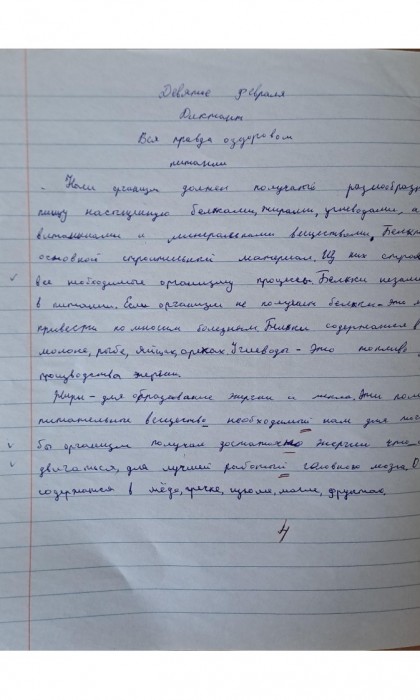 Девятое февраля
Диктант
Вся правда оздоровом
питании
Наш организм должен получать разнообраз
пищу насыщенную белками, жирами, углеводами, а
витаминами и минеральными веществами. Белк
основной строительный материал. Из них строя
все необходимые организму процессы. Белки незаме
в питании. Если организм не получает белки - это м
привести ко многим болезням. Белки содержатся в
молоке, рыбе, яйцах, орехах. Углеводы - это топливо
производства энергии.
Жиры - для образования энергии и тепла. Эти
питательные вещества необходимый нам для
бы организм получал достаточно энергии
двигатися, для лучшей работый головного мозга. О
содержатся в мёде, гречке, изюме, масле, фруктах.
4